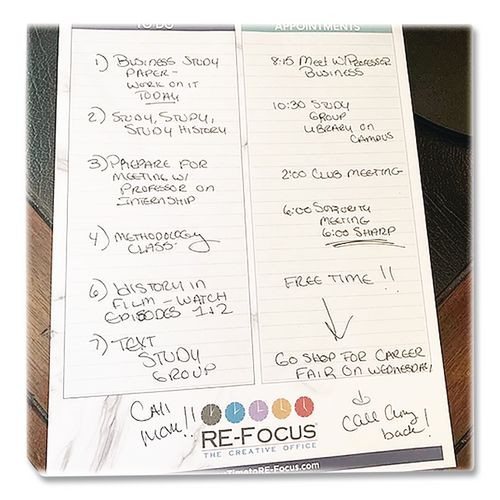 TO DO
1) BUSINESS STUDY
PAPER -
WORK ON IT
TODAY
2) STUDY, STUDY,
STUDY HISTORY
3) PREPARE FOR
MEETING W/
PROFESSOR ON
INTERNSHIP
4) METHODOLOGY
CLASS
6) HISTORY IN
FILM - WATCH
EPISODES 1+2
7) TEXT
STUDY
GROUP
CALL
MOM!!
APPOINTMENTS
8:15 MEET W/PROFESSOR
BUSINESS
10:30 STUDY
GROUP
LIBRARY ON
CAMPUS
2:00 CLUB MEETING
6:00 SORORITY
MEETING
6:00 SHARP
FREE TIME!!
GO SHOP FOR CAREER
FAIR ON WEDNESDAY!
CALL Amy
back!
RE-FOCUS
THE CREATIVE OFFICE
TimetoRE-Focus.com